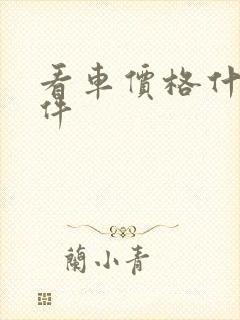 看車價格什
件
蘭小青